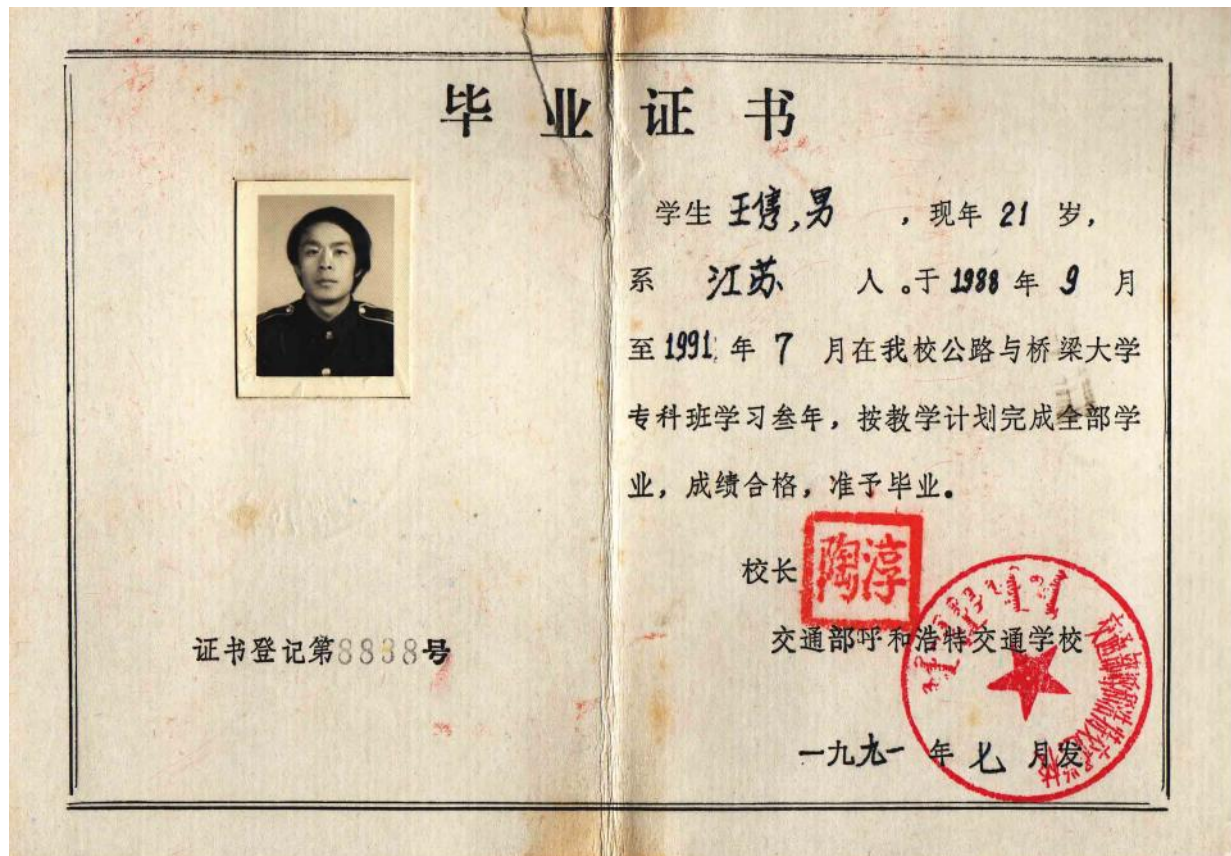 毕业证书
学生 王倩,男 ,现年 21 岁,
系 江苏 人。于 1988 年 9 月
至 1991 年 7 月在我校公路与桥梁大学
专科班学习叁年,按教学计划完成全部学
业,成绩合格,准予毕业。
校长 陶淳
交通部呼和浩特交通学校
一九九一 年 七 月发
证书登记第8838号